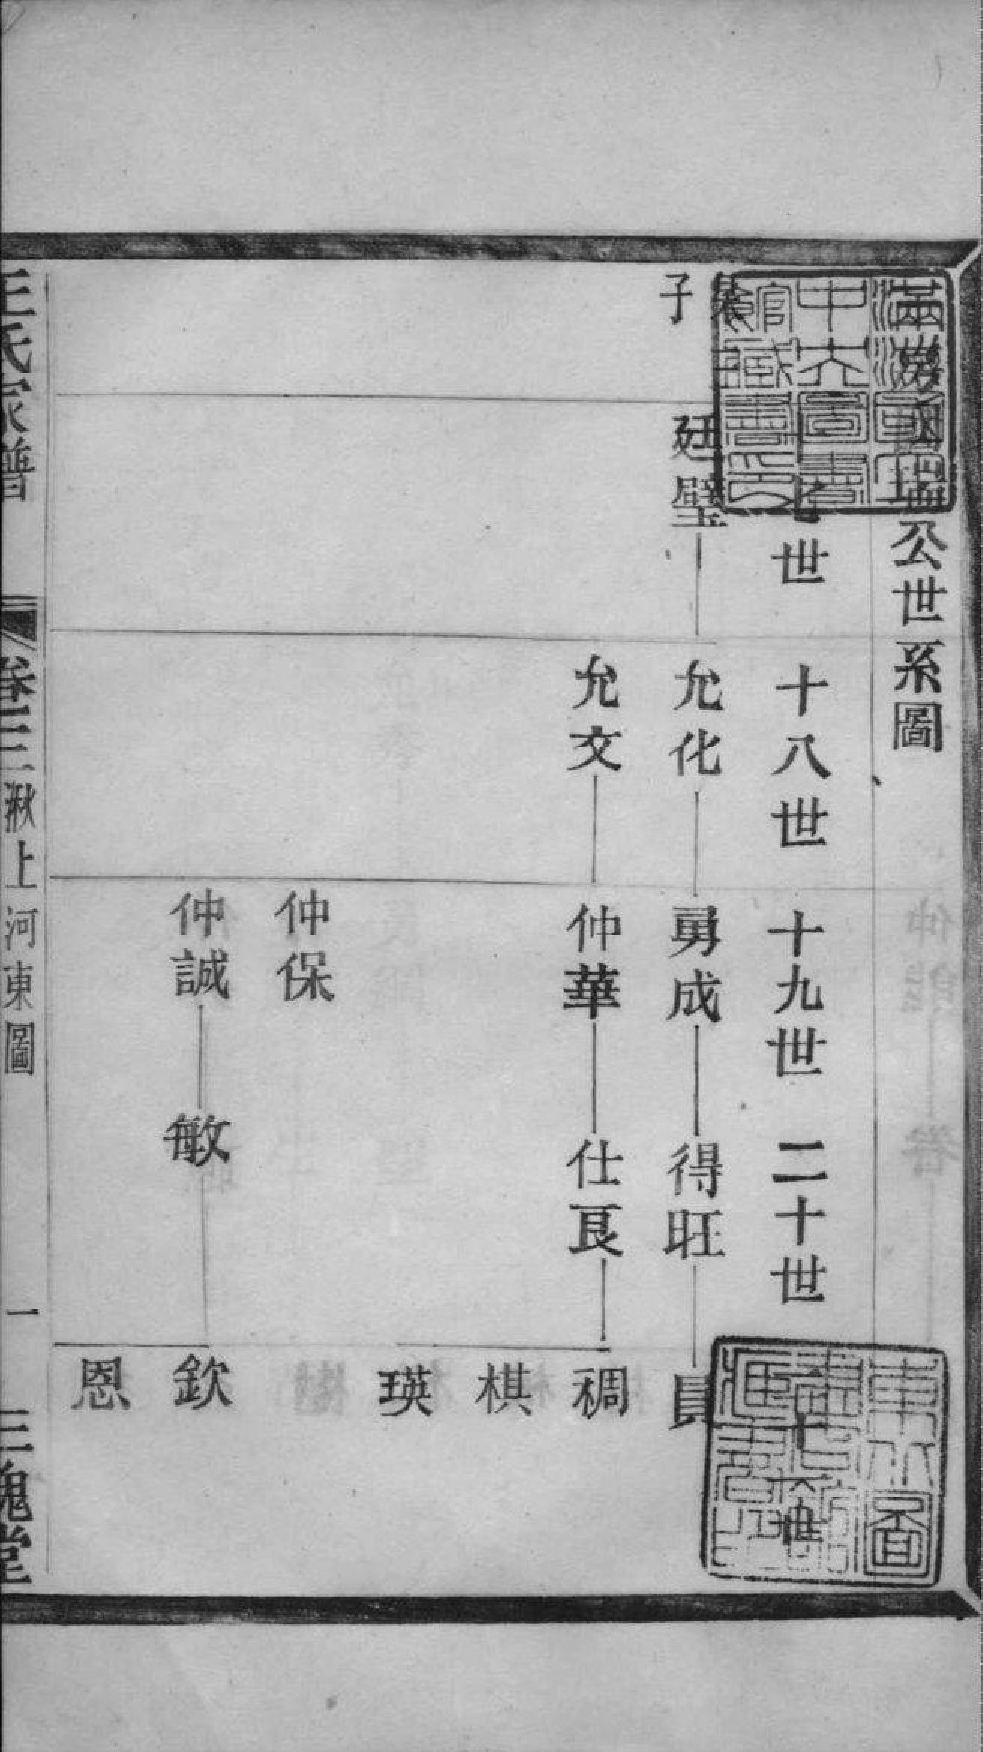 公世系圖
十七世
十八世
十九世
二十世
子
廷璧
允化
勇成
得旺
員
允文
仲華
仕良
稠
棋
瑛
仲保
仲誠
敏
欽
恩
王氏家譜
卷三湫上河東圖
一
三槐堂